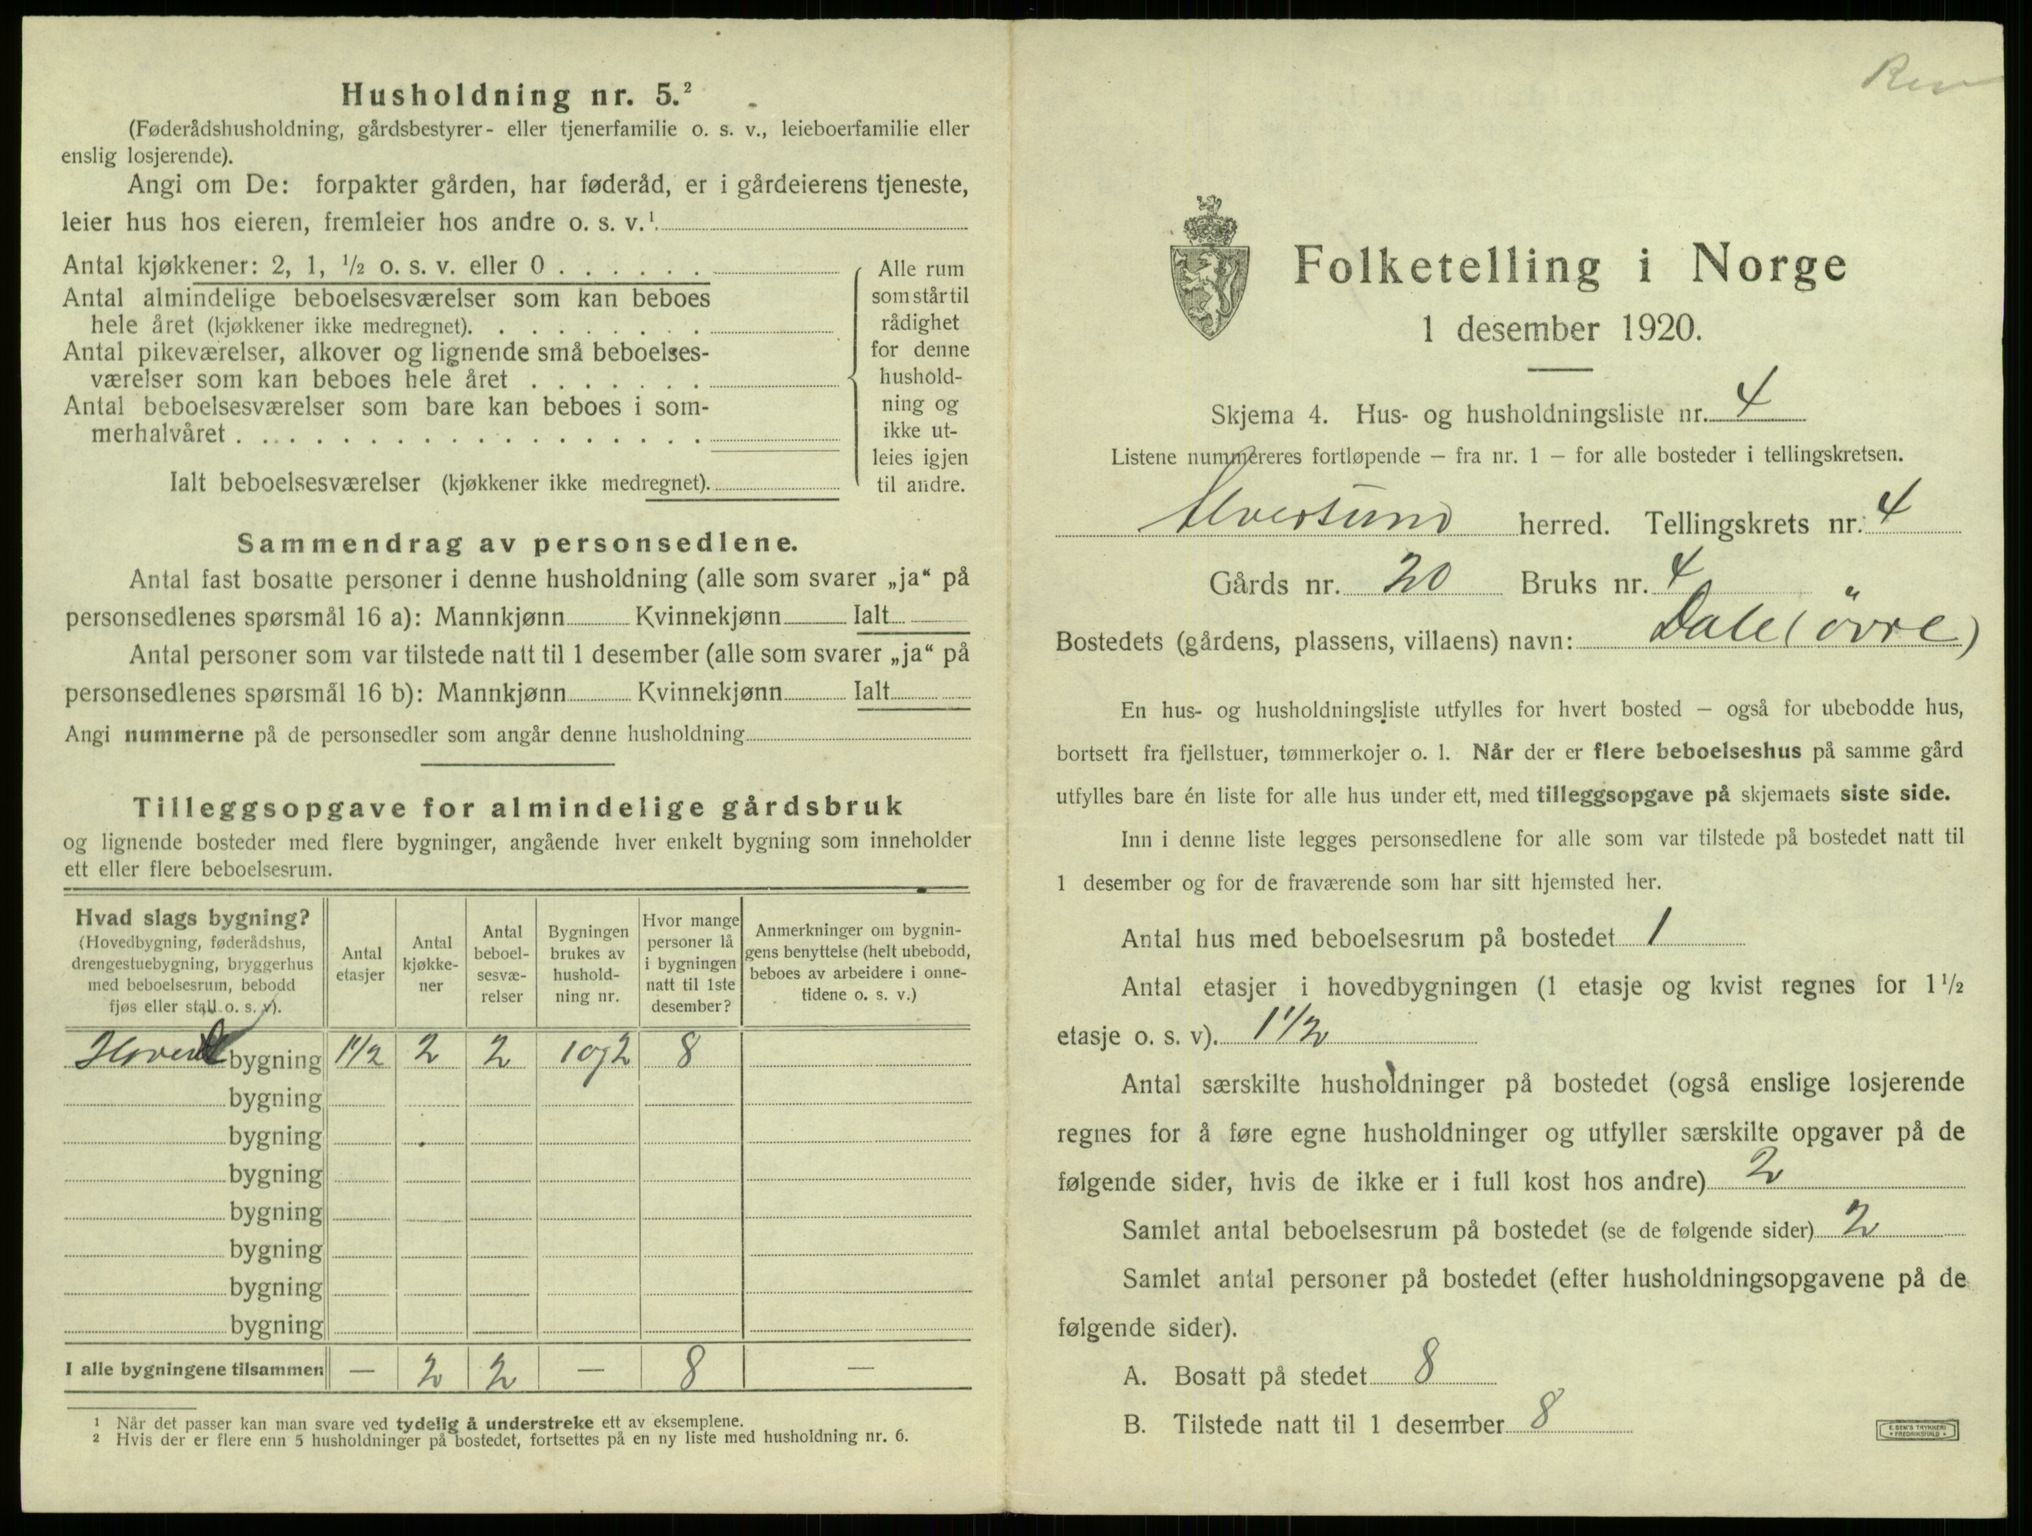 Husholdning nr. 5.²
(Føderådshusholdning, gårdsbestyrer- eller tjenerfamilie o. s. v., leieboerfamilie eller
enslig losjerende).
Angi om De: forpakter gården, har føderåd, er i gårdeierens tjeneste,
leier hus hos eieren, fremleier hos andre o. s. v.¹
Antal kjøkkener: 2, 1, ½ o. s. v. eller 0
Antal almindelige beboelsesværelser som kan beboes
hele året (kjøkkener ikke medregnet).
Antal pikeværelser, alkover og lignende små beboelses-
værelser som kan beboes hele året
Antal beboelsesværelser som bare kan beboes i som-
merhalvåret
Ialt beboelsesværelser (kjøkkener ikke medregnet).
Alle rum
som står til
rådighet
for denne
hushold-
ning og
ikke ut-
leies igjen
til andre.
Sammendrag av personsedlene.
Antal fast bosatte personer i denne husholdning (alle som svarer „ja“ på
personsedlenes spørsmål 16 a): Mannkjønn Kvinnekjønn Ialt
Antal personer som var tilstede natt til 1 desember (alle som svarer „ja“ på
personsedlenes spørsmål 16 b): Mannkjønn Kvinnekjønn Ialt
Angi nummerne på de personsedler som angår denne husholdning
Tilleggsopgave for almindelige gårdsbruk
og lignende bosteder med flere bygninger, angående hver enkelt bygning som inneholder
ett eller flere beboelsesrum.
Hvad slags bygning?
(Hovedbygning, føderådshus,
drengestuebygning, bryggerhus
med beboelsesrum, bebodd
fjøs eller stall o. s. v).
Antal
etasjer
Antal
kjøkke-
ner
Antal
beboel-
sesvæ-
relser
Bygningen
brukes av
hushold-
ning nr.
Hvor mange
personer lå
i bygningen
natt til 1ste
desember?
Anmerkninger om bygnin-
gens benyttelse (helt ubebodd,
beboes av arbeidere i onne-
tidene o. s. v.)
Hoved bygning 1½ 2 2 1 og 2 8
bygning
bygning
bygning
bygning
bygning
bygning
bygning
I alle bygningene tilsammen — 2 2 — 8 —
¹ Når det passer kan man svare ved tydelig å understreke ett av eksemplene.
² Hvis der er flere enn 5 husholdninger på bostedet, fortsettes på en ny liste med husholdning nr. 6.
Folketelling i Norge
1 desember 1920.
Skjema 4. Hus- og husholdningsliste nr. 4
Listene nummereres fortløpende – fra nr. 1 – for alle bosteder i tellingskretsen.
Alversund herred. Tellingskrets nr. 4
Gårds nr. 20 Bruks nr. 4
Bostedets (gårdens, plassens, villaens) navn: Dale (övre)
En hus- og husholdningsliste utfylles for hvert bosted – også for ubebodde hus,
bortsett fra fjellstuer, tømmerkojer o. l. Når der er flere beboelseshus på samme gård
utfylles bare én liste for alle hus under ett, med tilleggsopgave på skjemaets siste side.
Inn i denne liste legges personsedlene for alle som var tilstede på bostedet natt til
1 desember og for de fraværende som har sitt hjemsted her.
Antal hus med beboelsesrum på bostedet 1
Antal etasjer i hovedbygningen (1 etasje og kvist regnes for 1½
etasje o. s. v). 1½
Antal særskilte husholdninger på bostedet (også enslige losjerende
regnes for å føre egne husholdninger og utfyller særskilte opgaver på de
følgende sider, hvis de ikke er i full kost hos andre) 2
Samlet antal beboelsesrum på bostedet (se de følgende sider) 2
Samlet antal personer på bostedet (efter husholdningsopgavene på de
følgende sider).
A. Bosatt på stedet 8
B. Tilstede natt til 1 desember 8